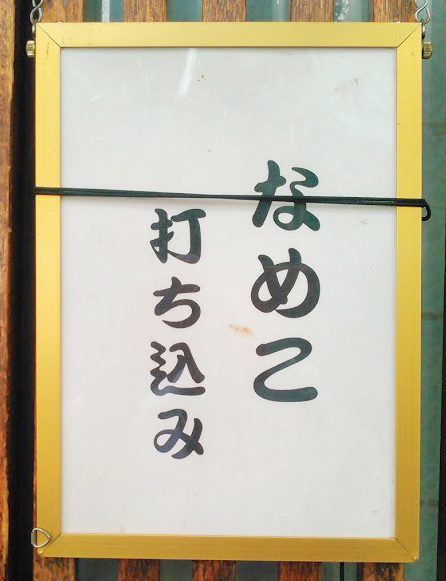 なめこ
打ち込み